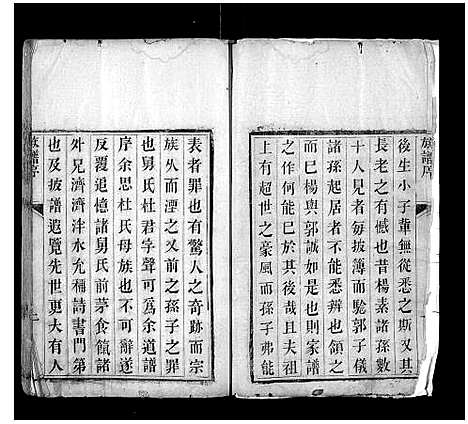 族譜序
後生小子輩無從悉之斯又其
長老之有憾也昔楊素諸孫數
十人兄者每披簿而駝郭子儀
諸孫起居者不能悉辨也頷之
而巳楊與郭誠如是也則家譜
之作何能巳於其後哉且夫祖
上有超世之豪風而孫子弗能
表者罪也有驚人之奇跡而宗
族久而湮之又前之孫子之罪
也舅氏杜君字聲可為余道譜
序余思杜氏母族也不可辭遂
反覆追憶諸舅氏前茅食餼諸
外兄濟濟泮水允稱詩書門第
也及披譜遐覽先世更大有人
族譜序